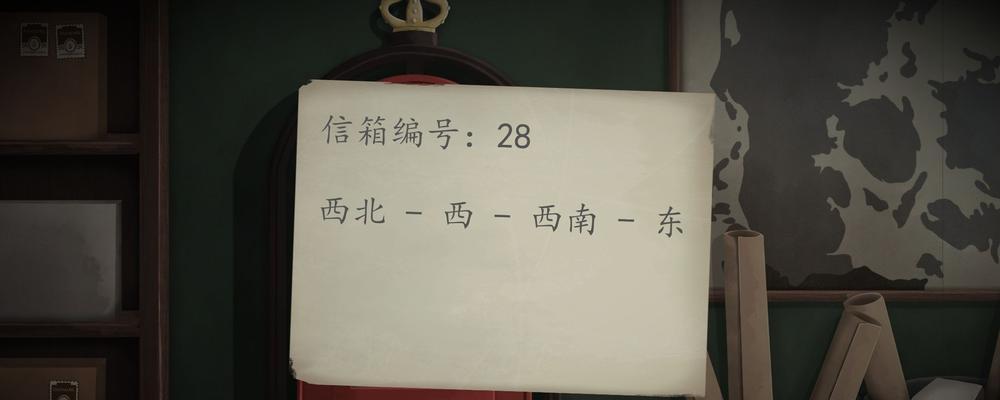 信箱编号：28
西北 - 西 - 西南 - 东